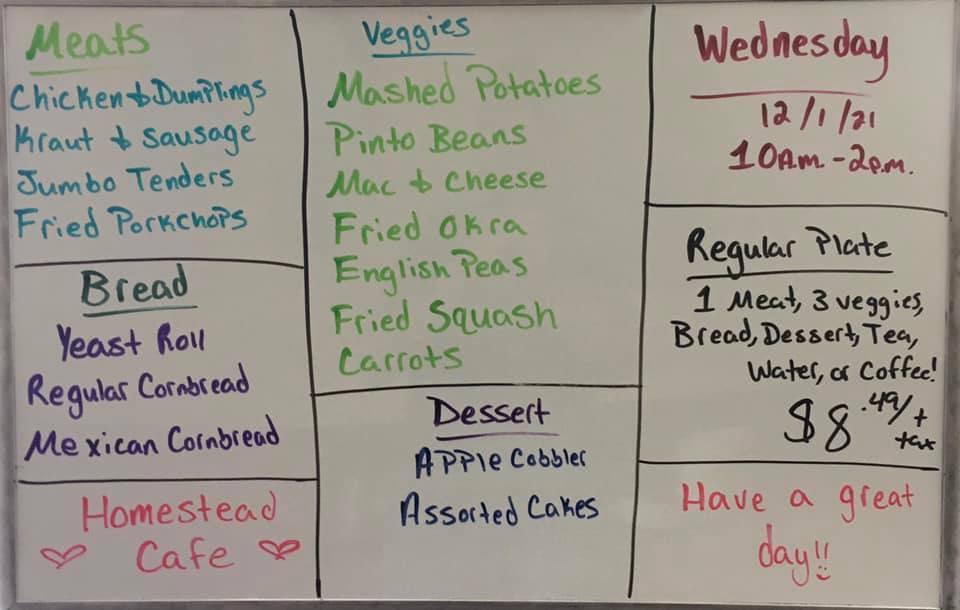 Meats
Chicken & Dumplings
Kraut & Sausage
Jumbo Tenders
Fried Porkchops
Bread
Yeast Roll
Regular Cornbread
Mexican Cornbread
Homestead
Cafe
Veggies
Mashed Potatoes
Pinto Beans
Mac & Cheese
Fried Okra
English Peas
Fried Squash
Carrots
Dessert
Apple Cobbler
Assorted Cakes
Wednesday
12/1/21
10A.m. - 2p.m.
Regular Plate
1 Meat, 3 veggies,
Bread, Dessert, Tea,
Water, or Coffee!
$8.49/+
tax
Have a great
day!!